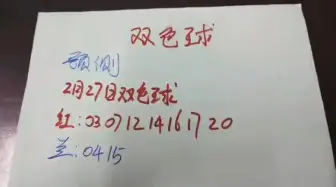 双色球
预测
2月27日双色球
红:03 07 12 14 16 17 20
兰:04 15